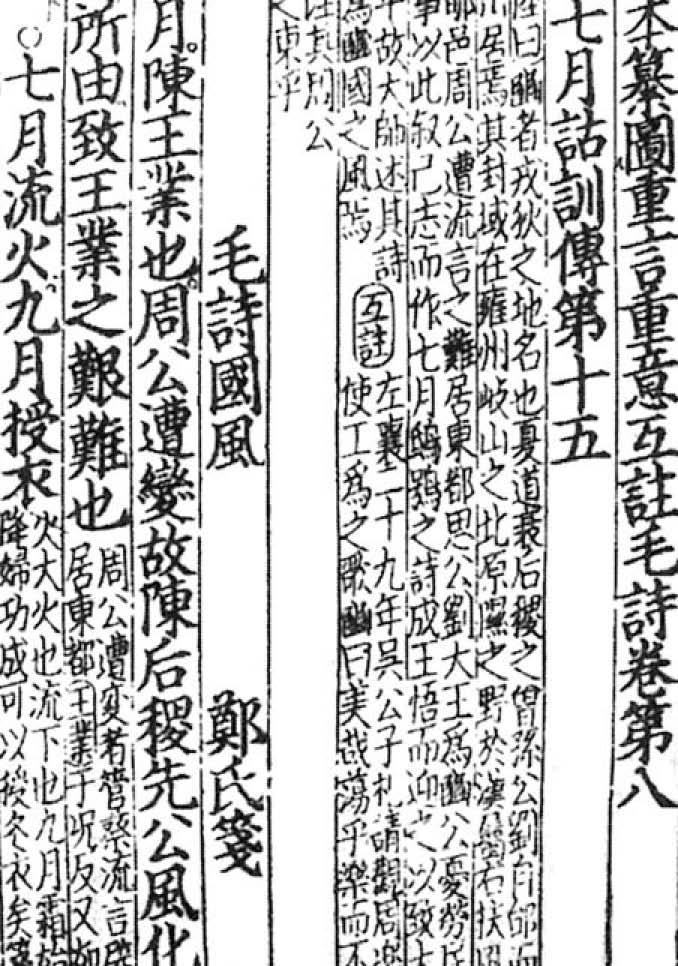 本纂圖重言重意互註毛詩卷第八
七月詁訓傳第十五
陸曰豳者戎狄之地名也夏道衰后稷之曾孫公劉自邰而
居焉其封域在雍州岐山之北原隰之野於漢屬右扶風
邑周公遭流言之難居東都思公劉大王為豳公憂勞民
事以此敘己志而作七月鴟鴞之詩成王悟而迎之以致太
平故大師述其詩
為豳國之風焉
互註
左襄二十九年吳公子札請觀周樂
使工為之歌豳曰美哉蕩乎樂而不
其周公
之東乎
毛詩國風 鄭氏箋
月陳王業也周公遭變故陳后稷先公風化
所由致王業之艱難也
周公遭變者管蔡流言辟
居東都王業于況反又如
○七月流火九月授衣
火大火也流下也九月霜始
降婦功成可以授冬衣矣箋